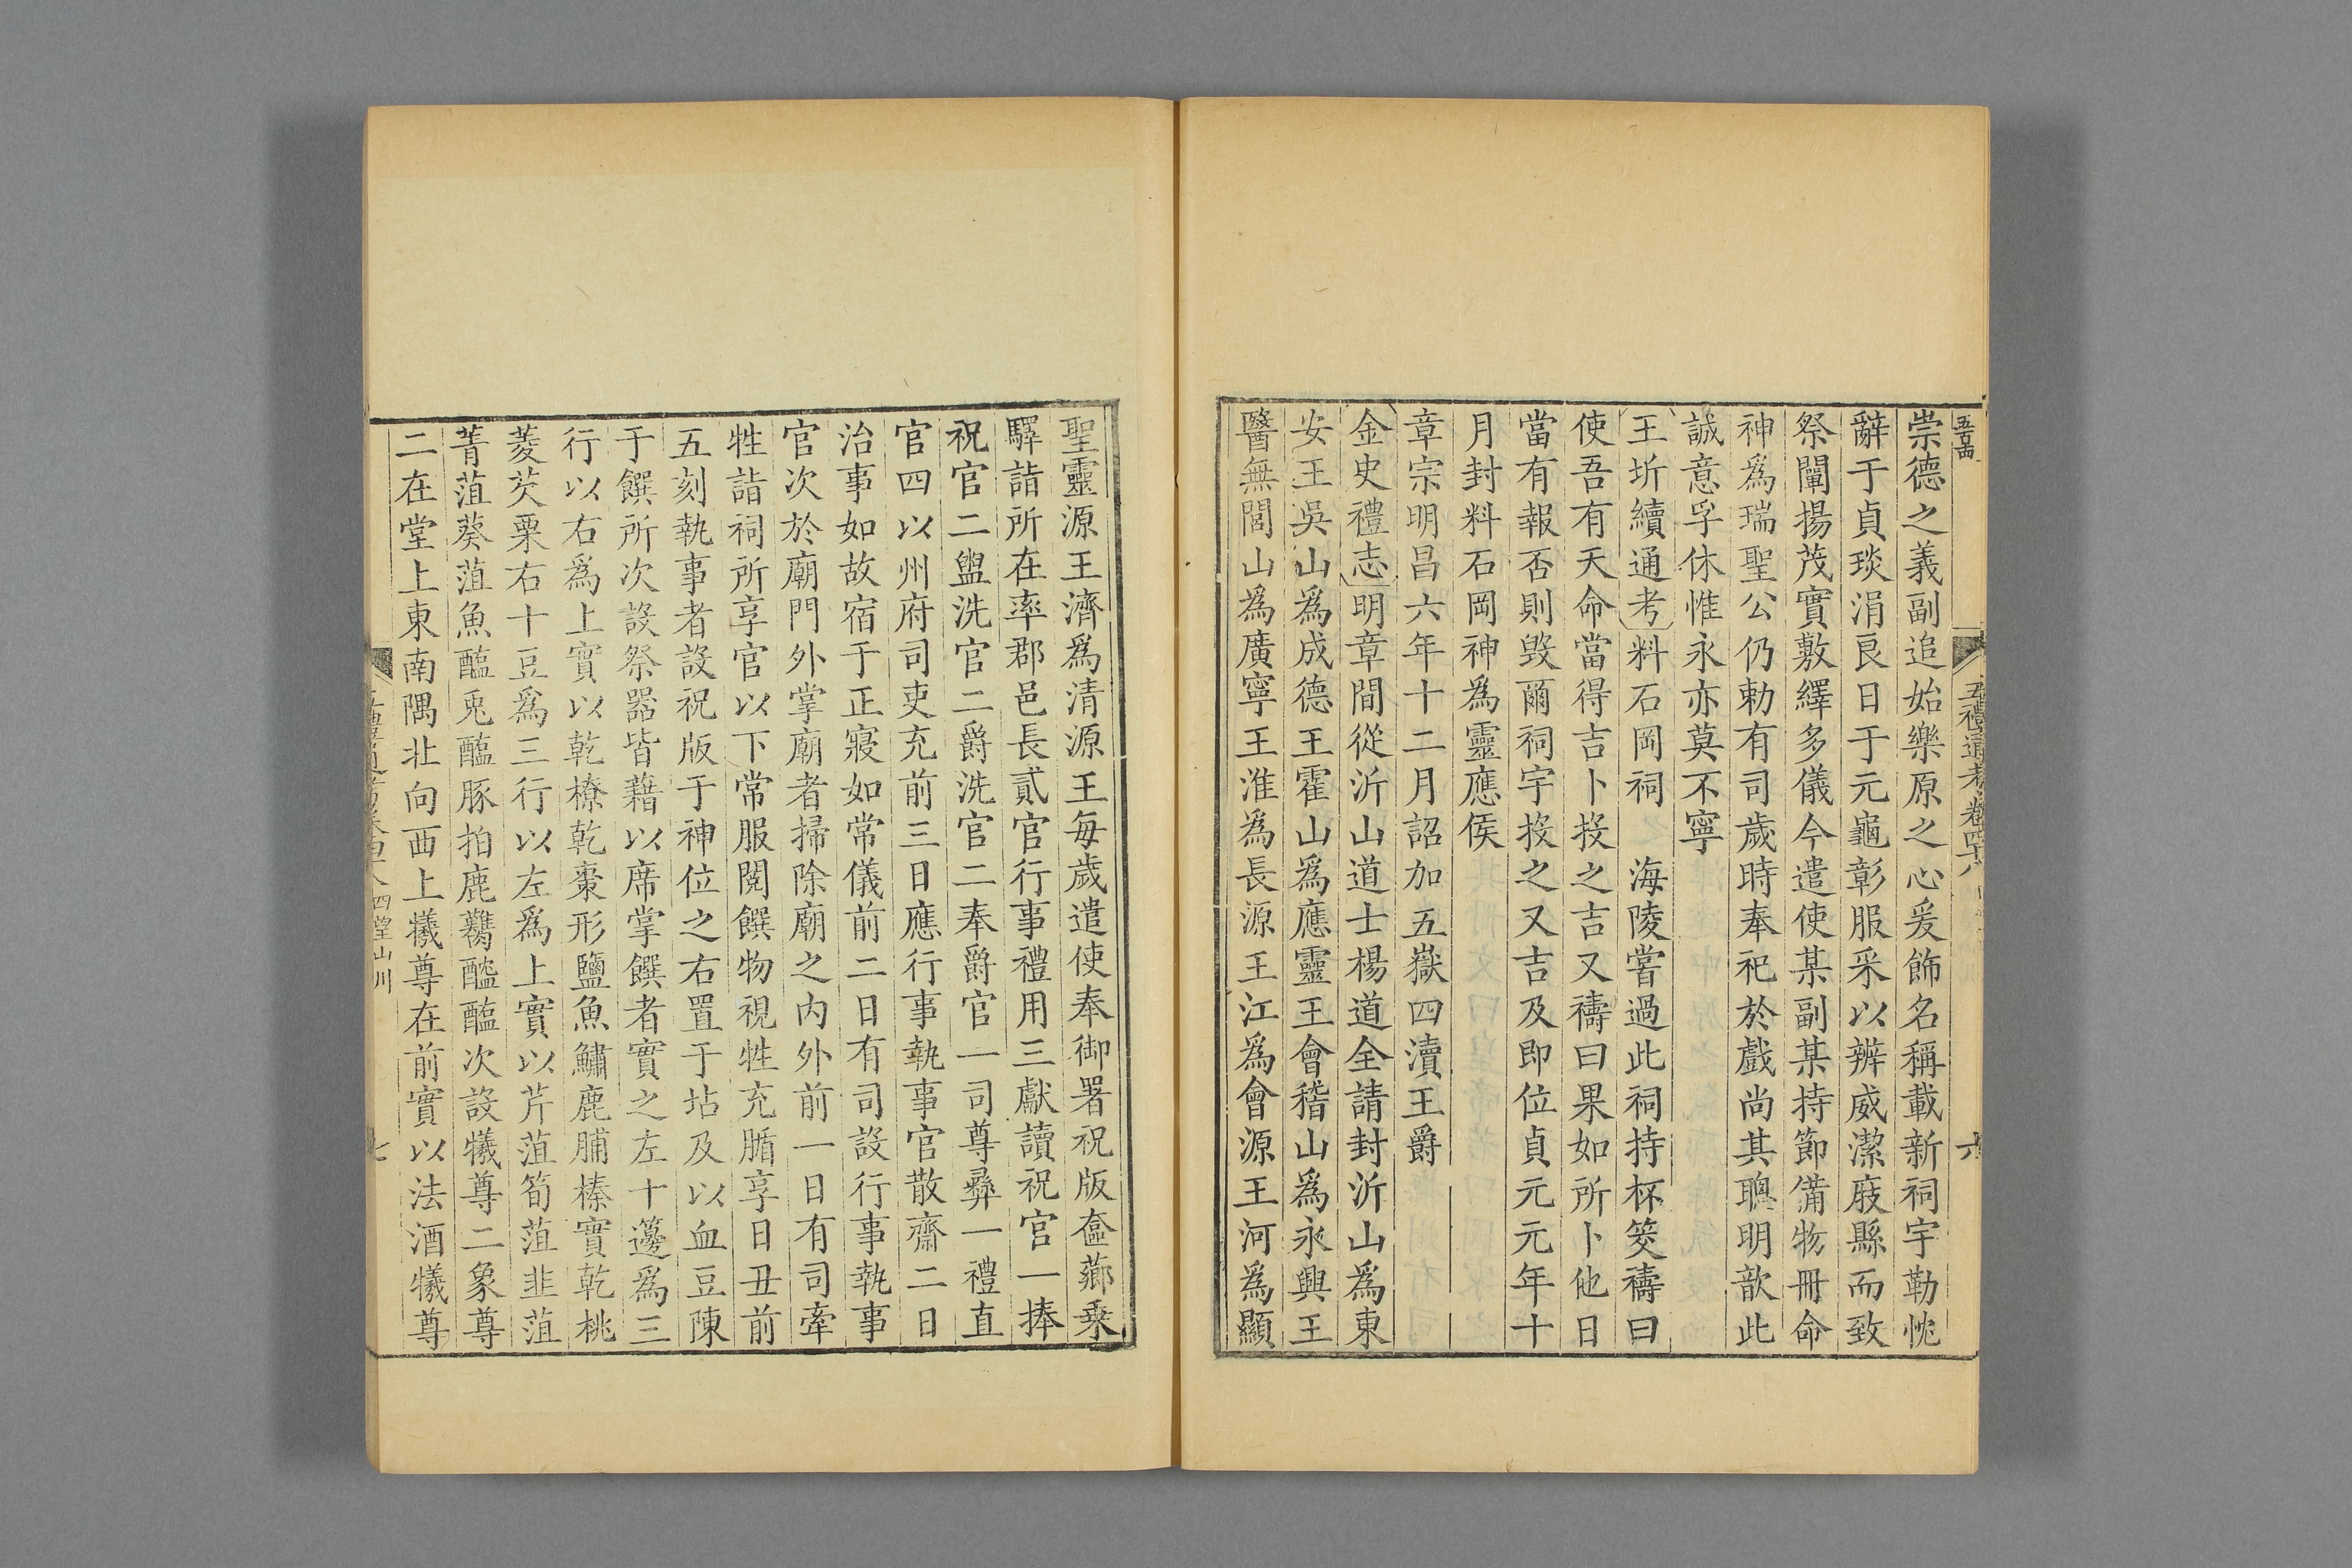 五禮通考卷四十八
六
崇德之義副追始樂原之心爰飾名稱載新祠宇勒忱
辭于貞琰涓良日于元龜彰服采以辨威潔庪縣而致
祭闡揚茂實敷繹多儀今遣使某副某持節備物冊命
神爲瑞聖公仍勅有司歲時奉祀於戲尚其聰明歆此
誠意孚休惟永亦莫不寧
王圻續通考料石岡祠　海陵嘗過此祠持杯筊禱曰
使吾有天命當得吉卜投之吉又禱曰果如所卜他日
當有報否則毀爾祠宇投之又吉及即位貞元元年十
月封料石岡神爲靈應侯
章宗明昌六年十二月詔加五嶽四瀆王爵
金史禮志明章間從沂山道士楊道全請封沂山爲東
安王吳山爲成德王霍山爲應靈王會稽山爲永興王
醫無閭山爲廣寧王淮爲長源王江爲會源王河爲顯
聖靈源王濟爲清源王每歲遣使奉御署祝版奩薌乘
驛詣所在率郡邑長貳官行事禮用三獻讀祝官一捧
祝官二盥洗官二爵洗官二奉爵官一司尊彞一禮直
官四以州府司吏充前三日應行事執事官散齋二日
治事如故宿于正寢如常儀前二日有司設行事執事
官次於廟門外掌廟者掃除廟之内外前一日有司牽
牲詣祠所享官以下常服閱饌物視牲充腯享日丑前
五刻執事者設祝版于神位之右置于坫及以血豆陳
于饌所次設祭器皆藉以席掌饌者實之左十籩爲三
行以右爲上實以乾䕩乾棗形鹽魚鱐鹿脯榛實乾桃
菱芡栗右十豆爲三行以左爲上實以芹菹筍菹韭菹
菁菹葵菹魚醢兎醢豚拍鹿臡醓醢次設犧尊二象尊
二在堂上東南隅北向西上犧尊在前實以法酒犧尊
四望山川
七